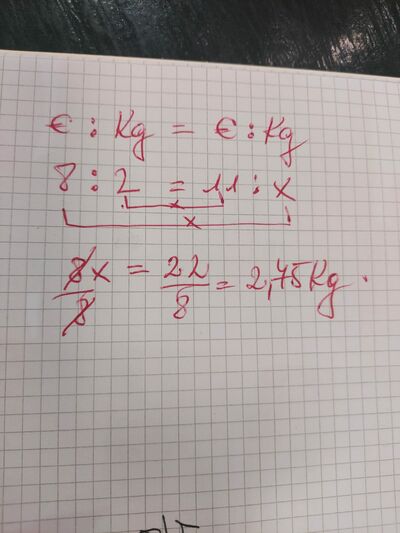 € : Kg = € : Kg
8 : 2 = 11 : x
x
x
8x/8 = 22/8 = 2,75 Kg.